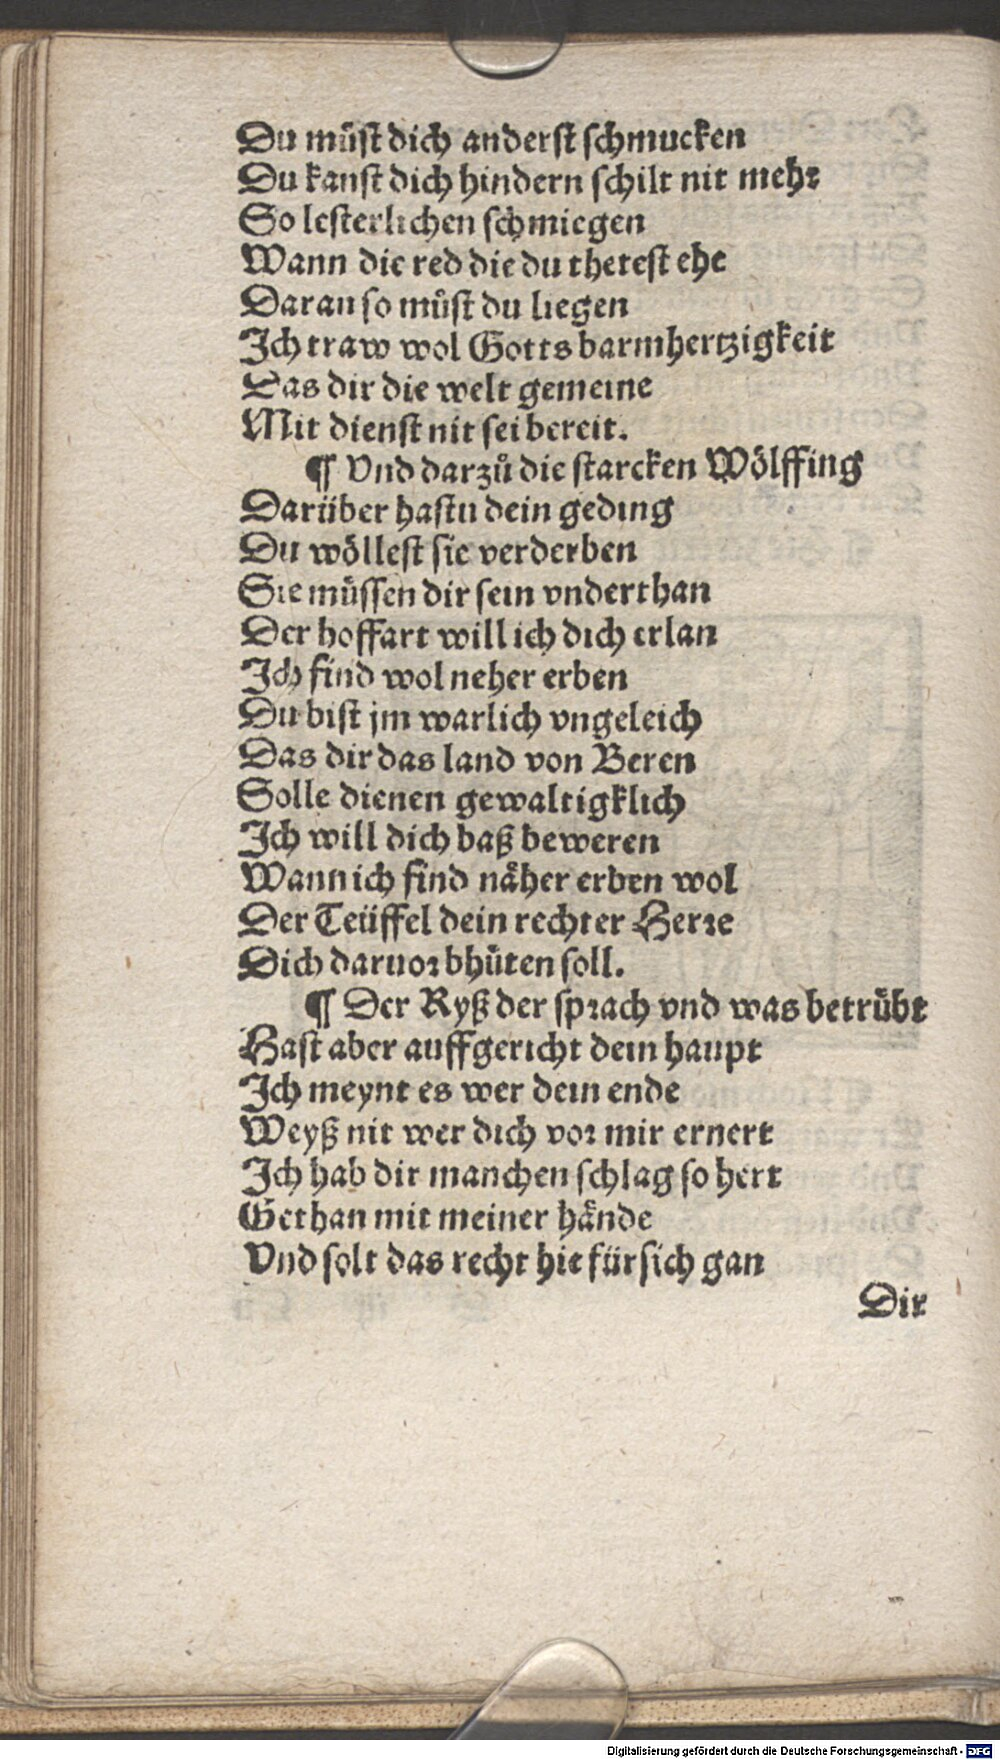 Du můst dich anderst schmucken
Du kanst dich hindern schilt nit mehr
So lesterlichen schmiegen
Wann die red die du thetest ehe
Daran so můst du liegen
Ich traw wol Gotts barmhertzigkeit
Das dir die welt gemeine
Mit dienst nit sei bereit.
¶ Vnd darzů die starcken Wölffing
Darüber hastu dein geding
Du wöllest sie verderben
Sie müssen dir sein vnderthan
Der hoffart will ich dich erlan
Ich find wol neher erben
Du bist jm warlich vngeleich
Das dir das land von Beren
Solle dienen gewaltigklich
Ich will dich baß beweren
Wann ich find näher erben wol
Der Teüffel dein rechter Herre
Dich daruor bhüten soll.
¶ Der Ryß der sprach vnd was betrübt
Hast aber auffgericht dein haupt
Ich meynt es wer dein ende
Weyß nit wer dich vor mir ernert
Ich hab dir manchen schlag so hert
Gethan mit meiner hände
Vnd solt das recht hie für sich gan
Dir
Digitalisierung gefördert durch die Deutsche Forschungsgemeinschaft - DFG